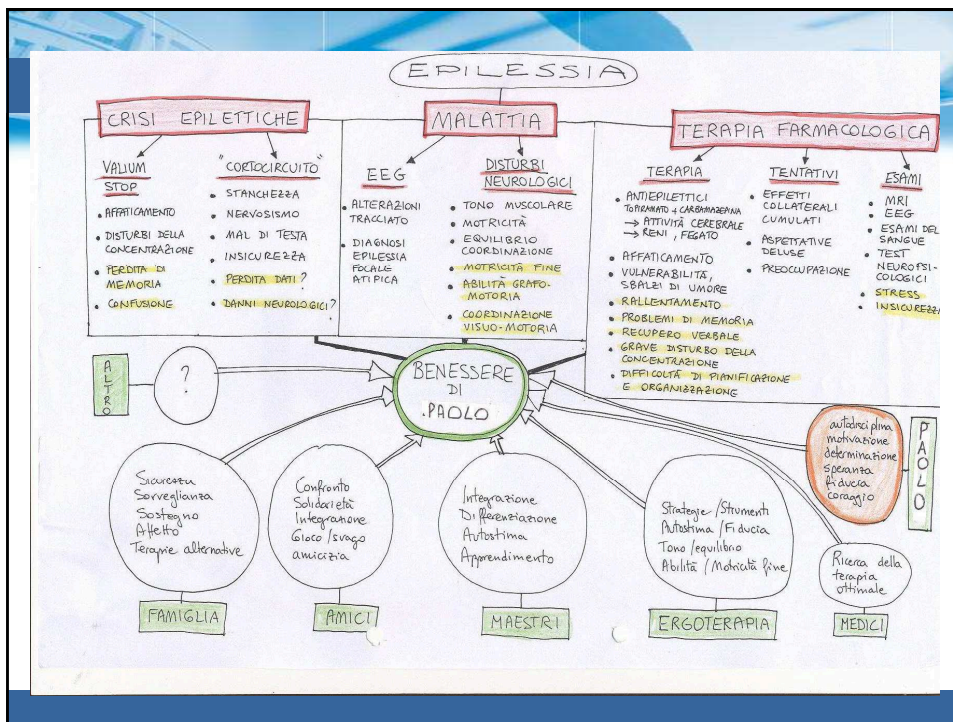 EPILESSIA
CRISI EPILETTICHE
VALIUM
STOP
• AFFATICAMENTO
• DISTURBI DELLA
CONCENTRAZIONE
• PERDITA DI
MEMORIA
• CONFUSIONE
"CORTOCIRCUITO"
• STANCHEZZA
• NERVOSISMO
• MAL DI TESTA
• INSICUREZZA
• PERDITA DATI?
• DANNI NEUROLOGICI?
MALATTIA
EEG
• ALTERAZIONI
TRACCIATO
• DIAGNOSI
EPILESSIA
FOCALE
ATIPICA
DISTURBI
NEUROLOGICI
• TONO MUSCOLARE
• MOTRICITÀ
• EQUILIBRIO
COORDINAZIONE
• MOTRICITÀ FINE
• ABILITÀ GRAFO-
MOTORIA
• COORDINAZIONE
VISUO-MOTORIA
TERAPIA FARMACOLOGICA
TERAPIA
• ANTIEPILETTICI
TOPIRAMATO + CARBAMAZEPINA
→ ATTIVITÀ CEREBRALE
→ RENI, FEGATO
• AFFATICAMENTO
• VULNERABILITÀ,
SBALZI DI UMORE
• RALLENTAMENTO
• PROBLEMI DI MEMORIA
• RECUPERO VERBALE
• GRAVE DISTURBO DELLA
CONCENTRAZIONE
• DIFFICOLTÀ DI PIANIFICAZIONE
E ORGANIZZAZIONE
TENTATIVI
• EFFETTI
COLLATERALI
CUMULATI
• ASPETTATIVE
DELUSE
• PREOCCUPAZIONE
ESAMI
• MRI
• EEG
• ESAMI DEL
SANGUE
• TEST
NEUROPSI-
COLOGICI
• STRESS
INSICUREZZA
BENESSERE
DI
PAOLO
ALTRO
?
Sicurezza
Sorveglianza
Sostegno
Affetto
Terapie alternative
FAMIGLIA
Confronto
Solidarietà
Integrazione
Gioco/svago
amicizia
AMICI
Integrazione
Differenziazione
Autostima
Apprendimento
MAESTRI
Strategie/Strumenti
Autostima/Fiducia
Tono/equilibrio
Abilità/Motricità fine
ERGOTERAPIA
Ricerca della
terapia
ottimale
MEDICI
autodisciplina
motivazione
determinazione
speranza
fiducia
coraggio
PAOLO